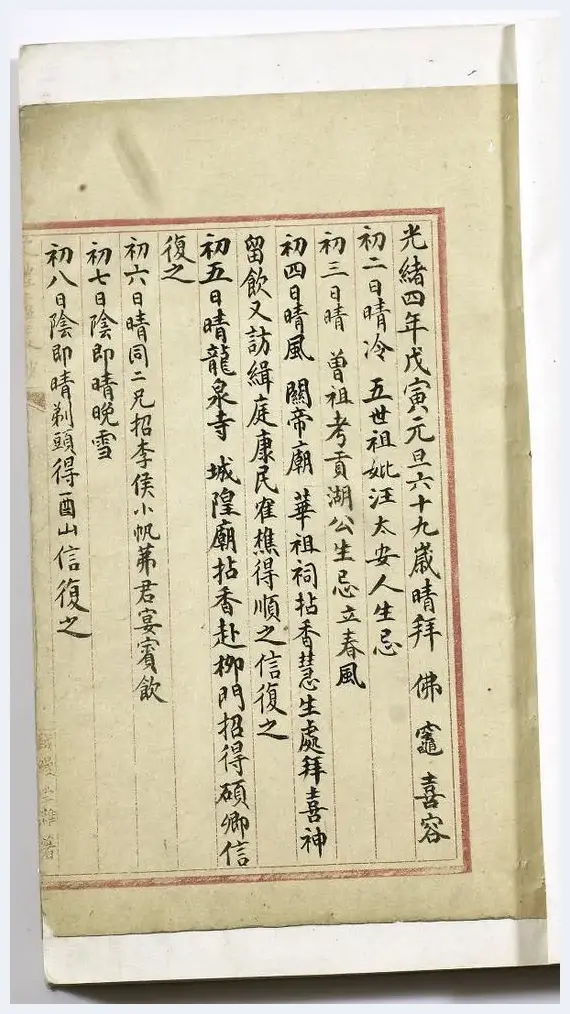 光緒四年戊寅元旦六十九歲晴拜 佛 竈 喜容
初二日晴冷 五世祖妣汪太安人生忌
初三日晴 曾祖考貢湖公生忌立春風
初四日晴風 關帝廟 華祖祠拈香慧生處拜喜神
留飲又訪緝庭康民雀樵得順之信復之
初五日晴龍泉寺 城隍廟拈香赴柳門招得碩卿信
復之
初六日晴同二兄招李侯小帆茀君宴賓飲
初七日陰即晴晚雪
初八日陰即晴剃頭得酉山信復之